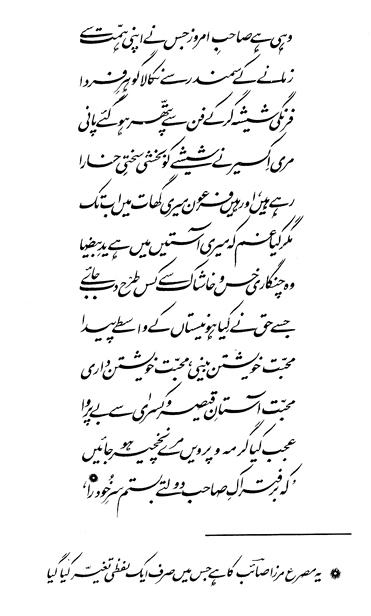 وہی ہے صاحبِ امروز جس نے اپنی ہمّت سے
زمانے کے سمندر سے نکالا گوہرِ فردا
فرنگی شیشہ گر کے فن سے پتھّر ہوگئے پانی
مری اکسیر نے شیشے کو بخشی سختیِ خارا
رہے ہیں، اور ہیں فرعون میری گھات میں اب تک
مگر کیا غم کہ میری آستیں میں ہے یدِ بیضا
وہ چنگاری خس و خاشاک سے کس طرح دب جائے
جسے حق نے کیا ہو نیستاں کے واسطے پیدا
محبّت خویشتن بینی، محبّت خویشتن داری
محبّت آستانِ قیصر و کسریٰ سے بے پروا
عجب کیا گر مہ و پرویں مرے نخچیر ہو جائیں
'کہ برفتراکِ صاحب دولتے بستم سرِ خود را'،
یہ مصرع مرزا صائبؔ کا ہے جس میں صرف ایک لفظی تغیّر کیا گیا